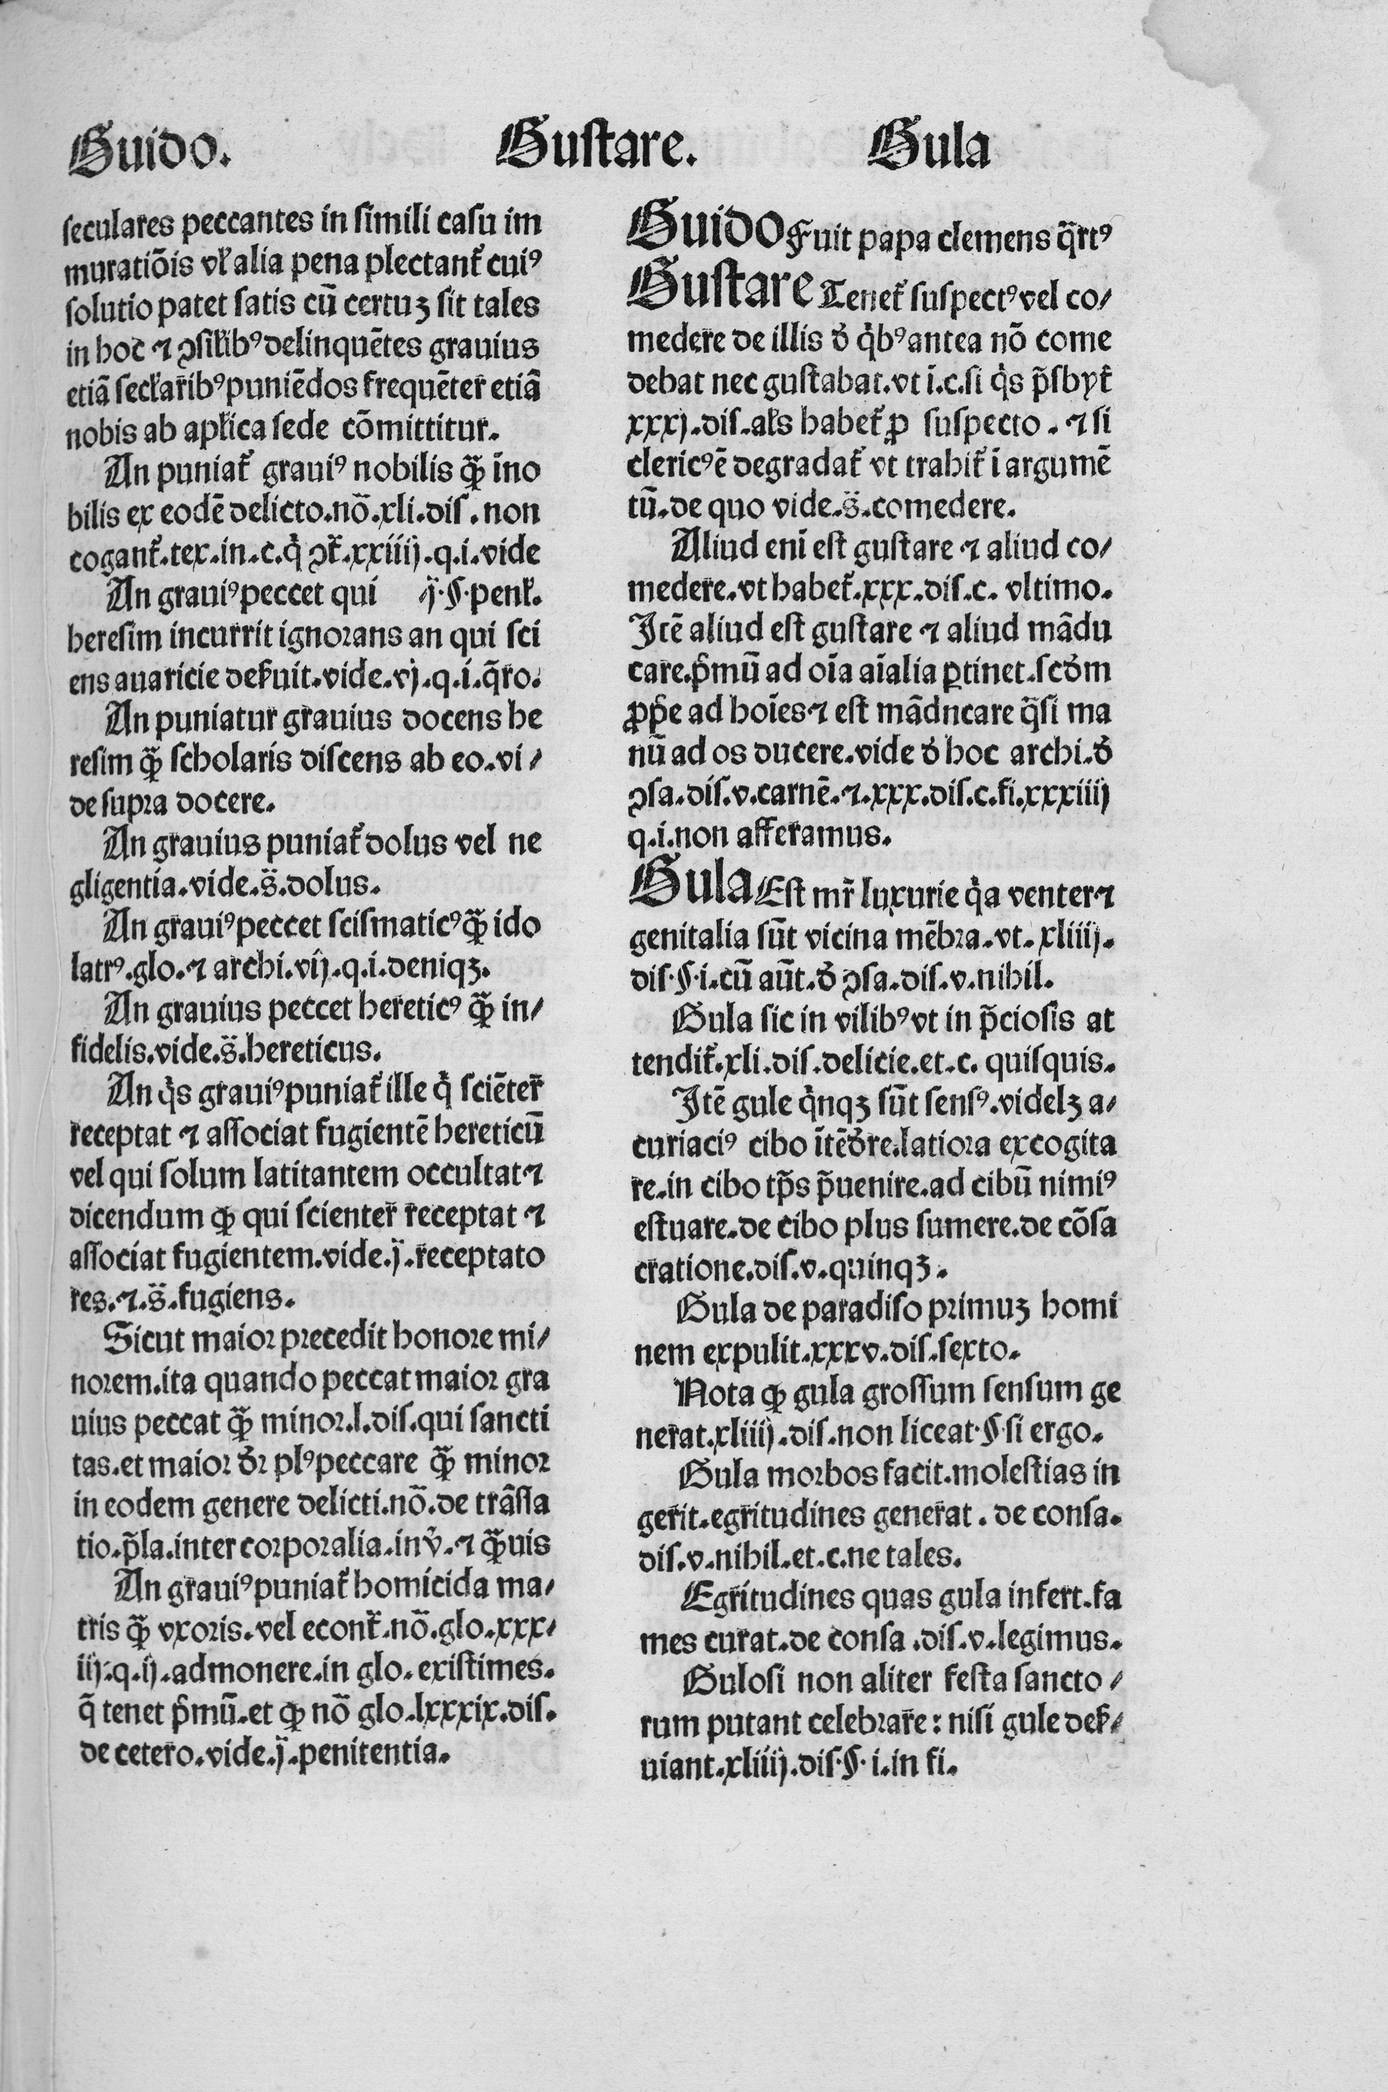 Guido. Gustare. Gula
seculares peccantes in simili casu im
muratiõis vl̃ alia pena plectant᷑ cuiꝰ
solutio patet satis cũ certuʒ sit tales
in hoc ⁊ ꝯsilib̾ꝰ delinquẽtes grauius
etiã secl̃arib̾ꝰ puniẽdos frequẽter etiã
nobis ab apl̃ica sede cõmittitur.
An puniat᷑ grauiꝰ nobilis ꝙ̃ ĩno
bilis ex eodẽ delicto.nõ.xli.dis.non
cogant᷑.tex.in.c.q̇ ꝯt᷑.xxiiij.q.i.vide
An grauiꝰ peccet qui /j̈.§.penl̃.
heresim incurrit ignorans an qui sci
ens auaricie deẜuit.vide.vj.q.i.q̃ro.
An puniatur grauius docens he
resim ꝙ̃ scholaris discens ab eo.vi/
de supra docere.
An grauius puniat᷑ dolus vel ne
gligentia.vide.s̈.dolus.
An grauiꝰ peccet scismaticꝰ ꝙ̃ ido
latrꝰ.glo.⁊ archi.vij.q.i.deniqʒ.
An grauius peccet hereticꝰ ꝙ̃ in/
fidelis.vide.s̈.hereticus.
An q̇s grauiꝰ puniat᷑ ille q̇ sciẽter
receptat ⁊ associat fugientẽ hereticũ
vel qui solum latitantem occultat ⁊
dicendum ꝙ qui scienter receptat ⁊
associat fugientem.vide.j̈.receptato
res.⁊.s̈.fugiens.
Sicut maior precedit honore mi/
norem.ita quando peccat maior gra
uius peccat ꝙ̃ minor.l.dis.qui sancti
tas.et maior d̾r plꝰ peccare ꝙ̃ minor
in eodem genere delicti.nõ.de trãsla
tio.p̃la.inter corporalia.in v̾.⁊ ꝙ̃uis
An grauiꝰ puniat᷑ homicida ma/
tris ꝙ̃ vxoris.vel econt᷑.nõ.glo.xxx/
iij.q.ij.admonere.in glo.existimes.
q̃ tenet p̃mũ.et ꝙ nõ glo.lxxxix.dis.
de cetero.vide.j̈.penitentia.
Guido Fuit papa clemens q̃rtꝰ
Gustare Tenet᷑ suspectꝰ vel co/
medere de illis d̾ q̇bꝰ antea nõ come
debat nec gustabat.vt ĩ.c.si q̇s p̃sbyt᷑
xxxj.dis.al̃s habet᷑ ꝓ suspecto. ⁊ si
clericꝰ ẽ degradat᷑ vt trahit᷑ ĩ argumẽ
tũ.de quo vide.s̈.comedere.
Aliud enĩ est gustare ⁊ aliud co/
medere.vt habet᷑.xxx.dis.c. vltimo.
Itẽ aliud est gustare ⁊ aliud mãdu
care.p̃mũ ad oĩa aĩalia ꝑtinet.scd̾m
ꝓp̃e ad hoĩes ⁊ est mãdncare q̃si ma
nũ ad os ducere.vide d̾ hoc archi.d̾
ꝯsa.dis.v.carnẽ.⁊.xxx.dis.c.fi.xxxiiij
q.i.non afferamus.
Gula Est mr̃ luxurie q̇a venter ⁊
genitalia sũt vicina mẽbra.vt.xliiij.
dis.§.i.cũ aũt.d̾ ꝯsa.dis.v.nihil.
Gula sic in vilibꝰ vt in p̃ciosis at
tendit᷑.xli.dis.delicie.et.c. quisquis.
Itẽ gule q̇nqʒ sũt sensꝰ.videlʒ a/
curiaciꝰ cibo ĩtẽd̾re.latiora excogita
re.in cibo tp̃s p̃uenire.ad cibũ nimiꝰ
estuare.de cibo plus sumere.de cõsã
cratione.dis.v.quinqʒ.
Gula de paradiso primuʒ homi
nem expulit.xxxv.dis.sexto.
Nota ꝙ gula grossum sensum ge
nerat.xliiij.dis.non liceat.§.si ergo.
Gula morbos facit.molestias in
gerit.egritudines generat. de consa.
dis.v.nihil.et.c.ne tales.
Egritudines quas gula infert.fa
mes curat.de consa.dis.v.legimus.
Gulosi non aliter festa sancto/
rum putant celebrare: nisi gule deẜ/
uiant.xliiij.dis.§.i.in fi.